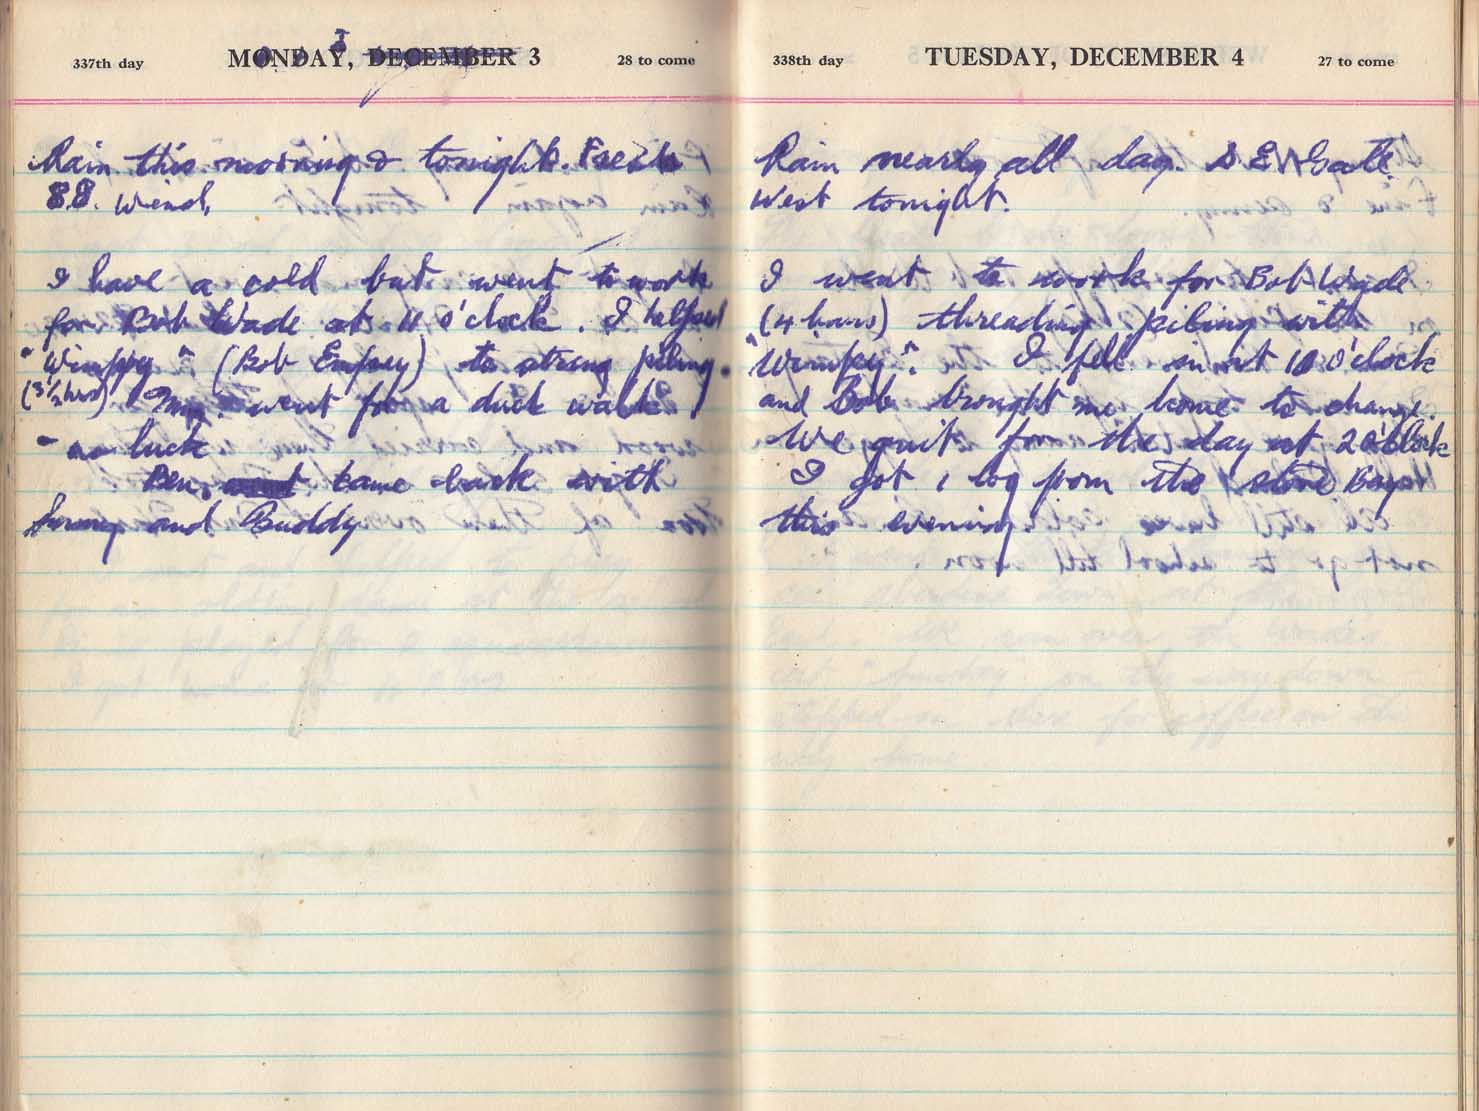 337th day MONDAY, DECEMBER 3 28 to come
Rain this morning & tonight. Fresh
S.E. Wind.
I have a cold but went to work
for Bob Wade at 11 o'clock. I helped
"Wimpey" (Bob Empey) to string piling.
(3 1/2 hrs) went for a duck walk
- no luck
Ben came back with
and Buddy
338th day TUESDAY, DECEMBER 4 27 to come
Rain nearly all day. S.E. Gale.
West tonight.
I went to work for Bob Wade
(4 hours) threading piling with
"Wimpey". I fell in at 10 o'clock
and Bob brought me home to change.
We quit for the day at 2 o'clock
I got 1 log from the store Bay
this evening.